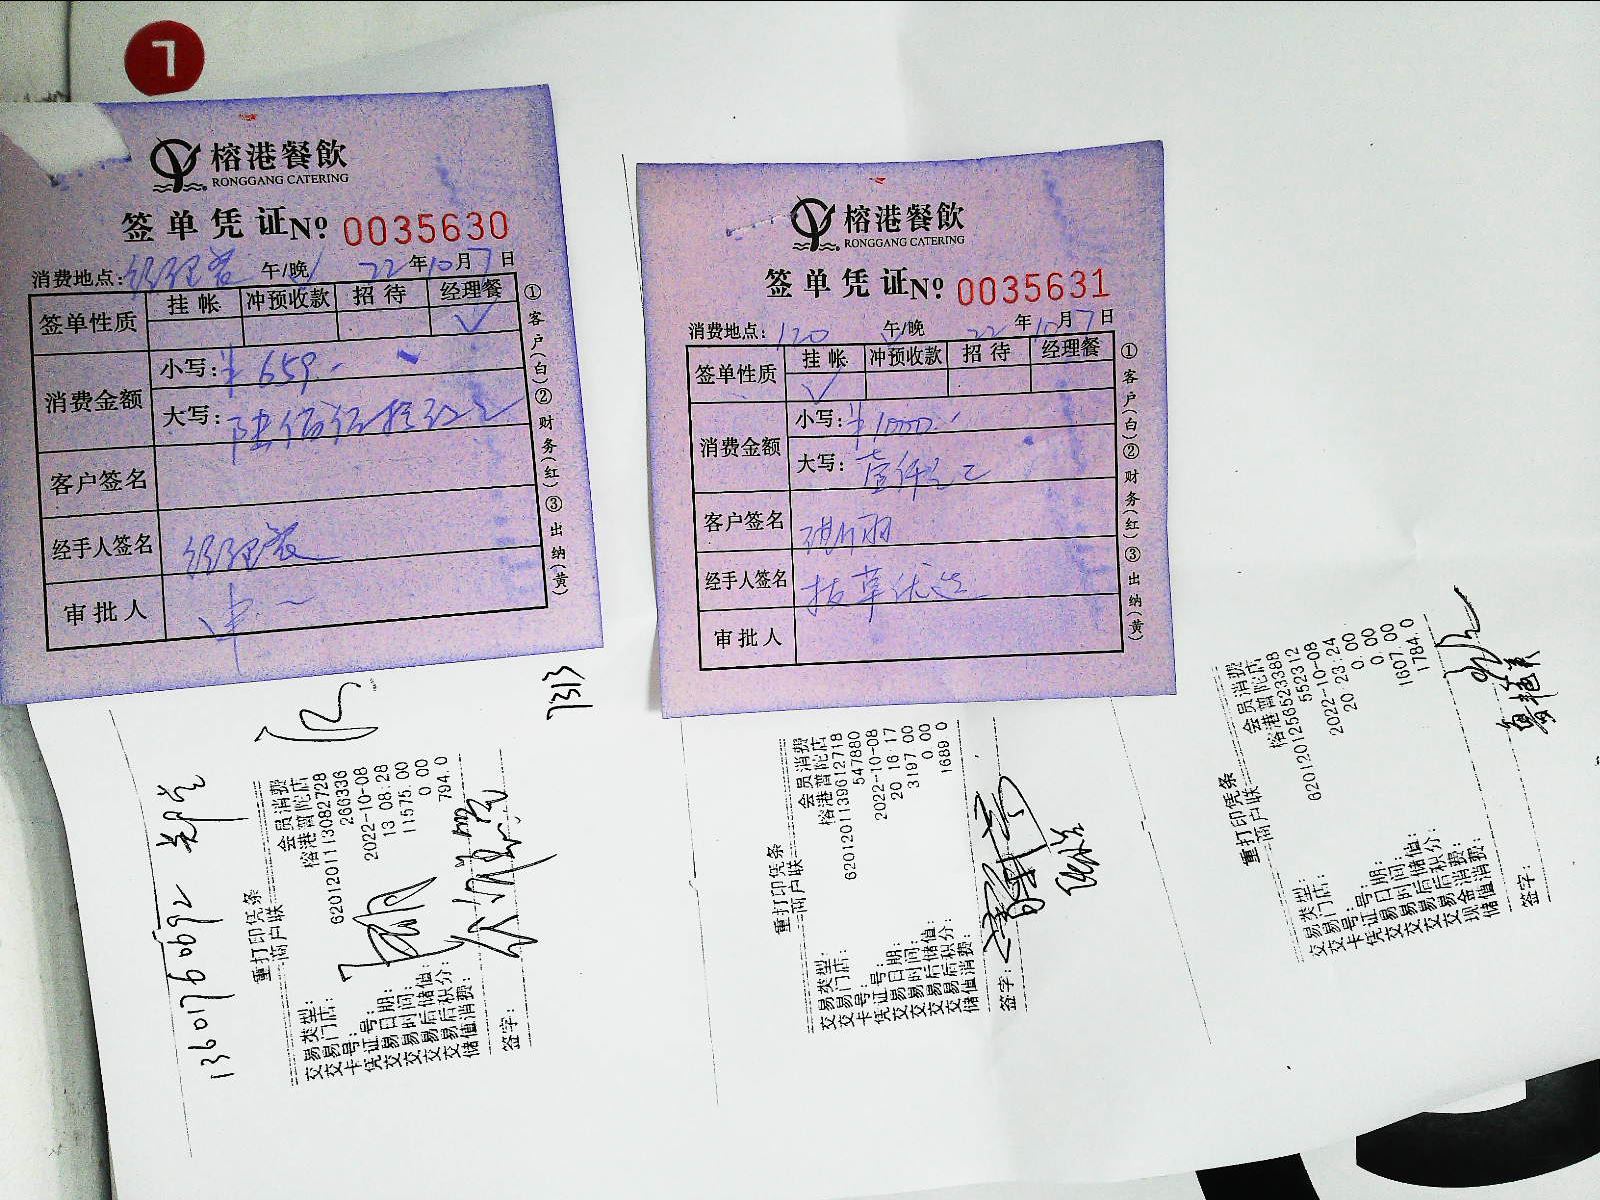 榕港餐飲
RONGGANG CATERING
签单凭证 No 0035630
消费地点: 经理餐 午/晚 22年10月7日
签单性质 挂帐 冲预收款 招待 经理餐
✓
消费金额 小写: ¥659.-
大写: 陆佰伍拾玖元
客户签名
经手人签名 经理餐
审批人
①客户(白)②财务(红)③出纳(黄)
榕港餐飲
RONGGANG CATERING
签单凭证 No 0035631
消费地点: 120 午/晚 22年10月7日
签单性质 挂帐 冲预收款 招待 经理餐
✓
消费金额 小写: ¥1000.-
大写: 壹仟元
客户签名
经手人签名 拔草优选
审批人
①客户(白)②财务(红)③出纳(黄)
7313
13601760692
重打印凭条
商户联
交易类型: 会员消费
交易门店: 榕港普陀店
卡号: 6201201113082728
凭证号: 266336
交易日期: 2022-10-08
交易时间: 13 08.28
交易后储值: 11575.00
交易后积分: 0.00
储值消费: 794.0
签字:
重打印凭条
商户联
交易类型: 会员消费
交易门店: 榕港普陀店
卡号: 6201201139612718
凭证号: 547880
交易日期: 2022-10-08
交易时间: 20 16 17
交易后储值: 3197 00
交易后积分: 0.00
储值消费: 1689 0
签字:
重打印凭条
商户联
交易类型: 会员消费
交易门店: 榕港普陀店
卡号: 6201201256523388
凭证号: 552312
交易日期: 2022-10-08
交易时间: 20 23:24
交易后储值: 0.00
交易后积分: 0.00
现金消费: 1607.00
储值消费: 1784.0
签字: